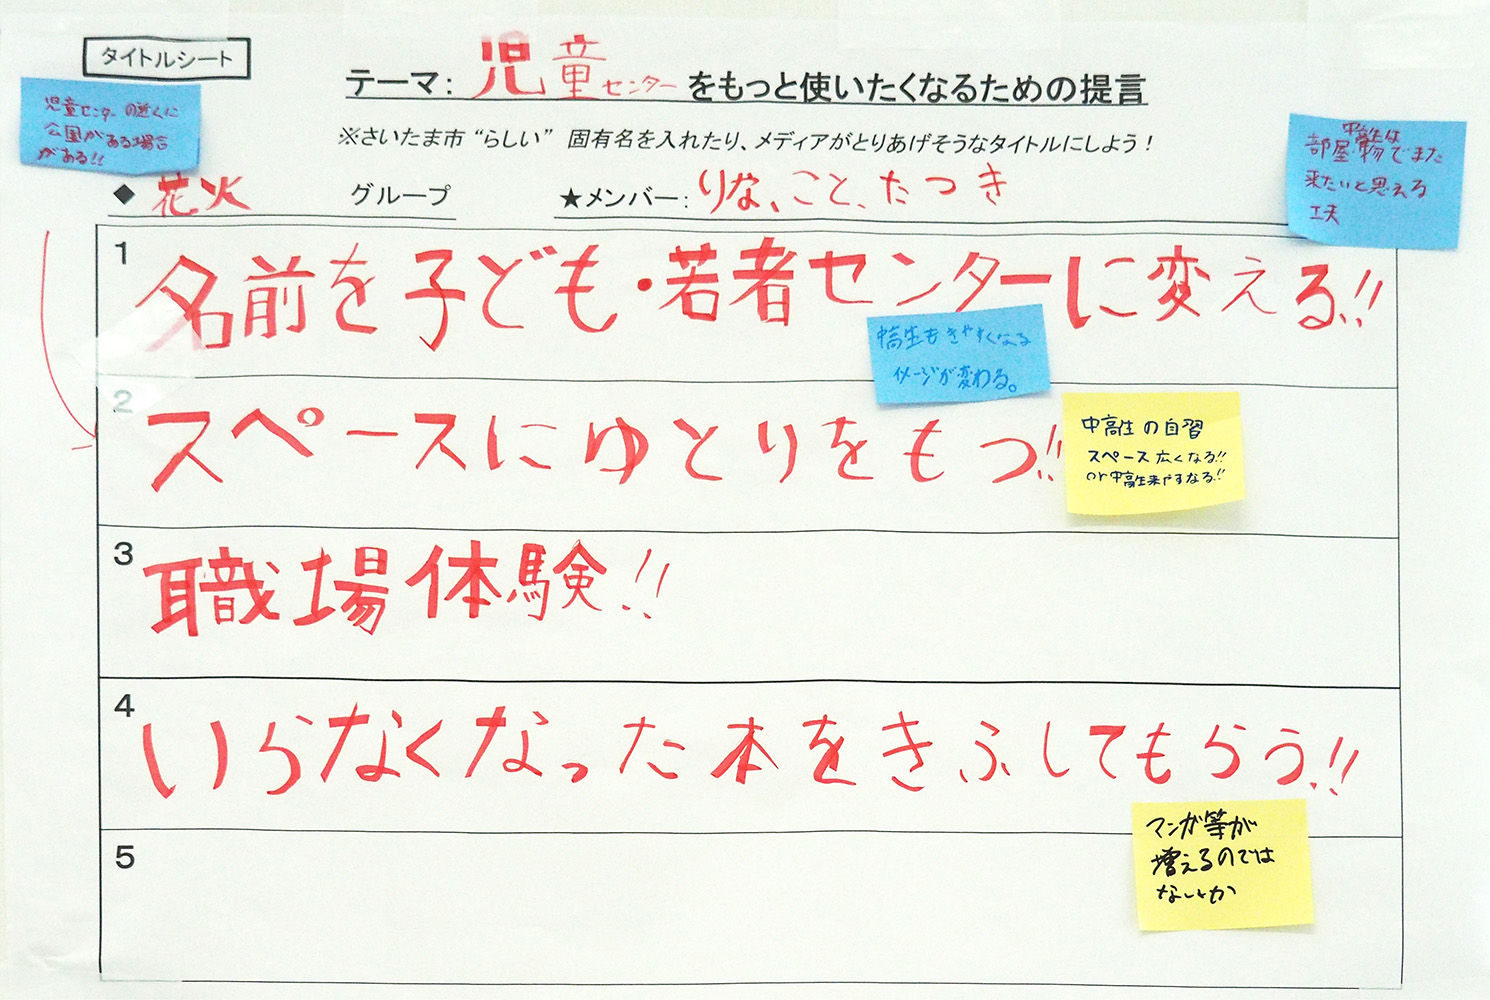 タイトルシート
テーマ: 児童センターをもっと使いたくなるための提言
児童センターの近くに
公園がある場合
がある!!
※さいたま市“らしい” 固有名を入れたり、メディアがとりあげそうなタイトルにしよう!
中高生は
部屋・物でまた
来たいと思える
工夫
◆ 花火 グループ ★メンバー: りな、こと、たつき
1 名前を子ども・若者センターに変える!!
中高生もきやすくなる
イメージが変わる。
2 スペースにゆとりをもつ!!
中高生の自習
スペース広くなる!!
or中高生来やすなる!!
3 職場体験!!
4 いらなくなった本をきふしてもらう!!
マンガ等が
増えるのでは
ないか
5